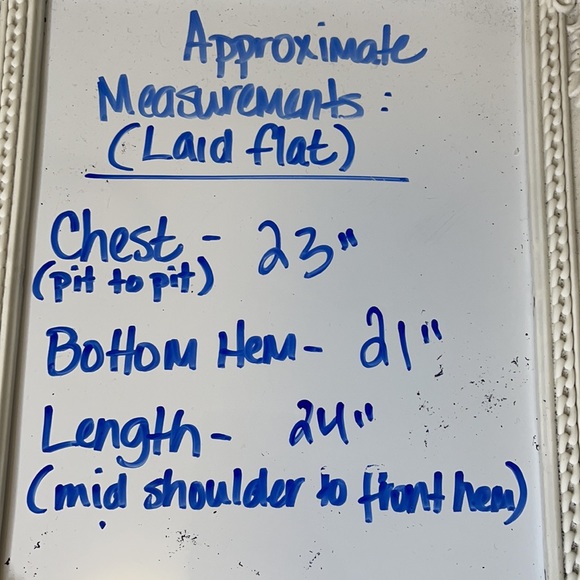 Approximate
Measurements:
(Laid flat)
Chest - 23"
(pit to pit)
Bottom Hem - 21"
Length - 24"
(mid shoulder to front hem)